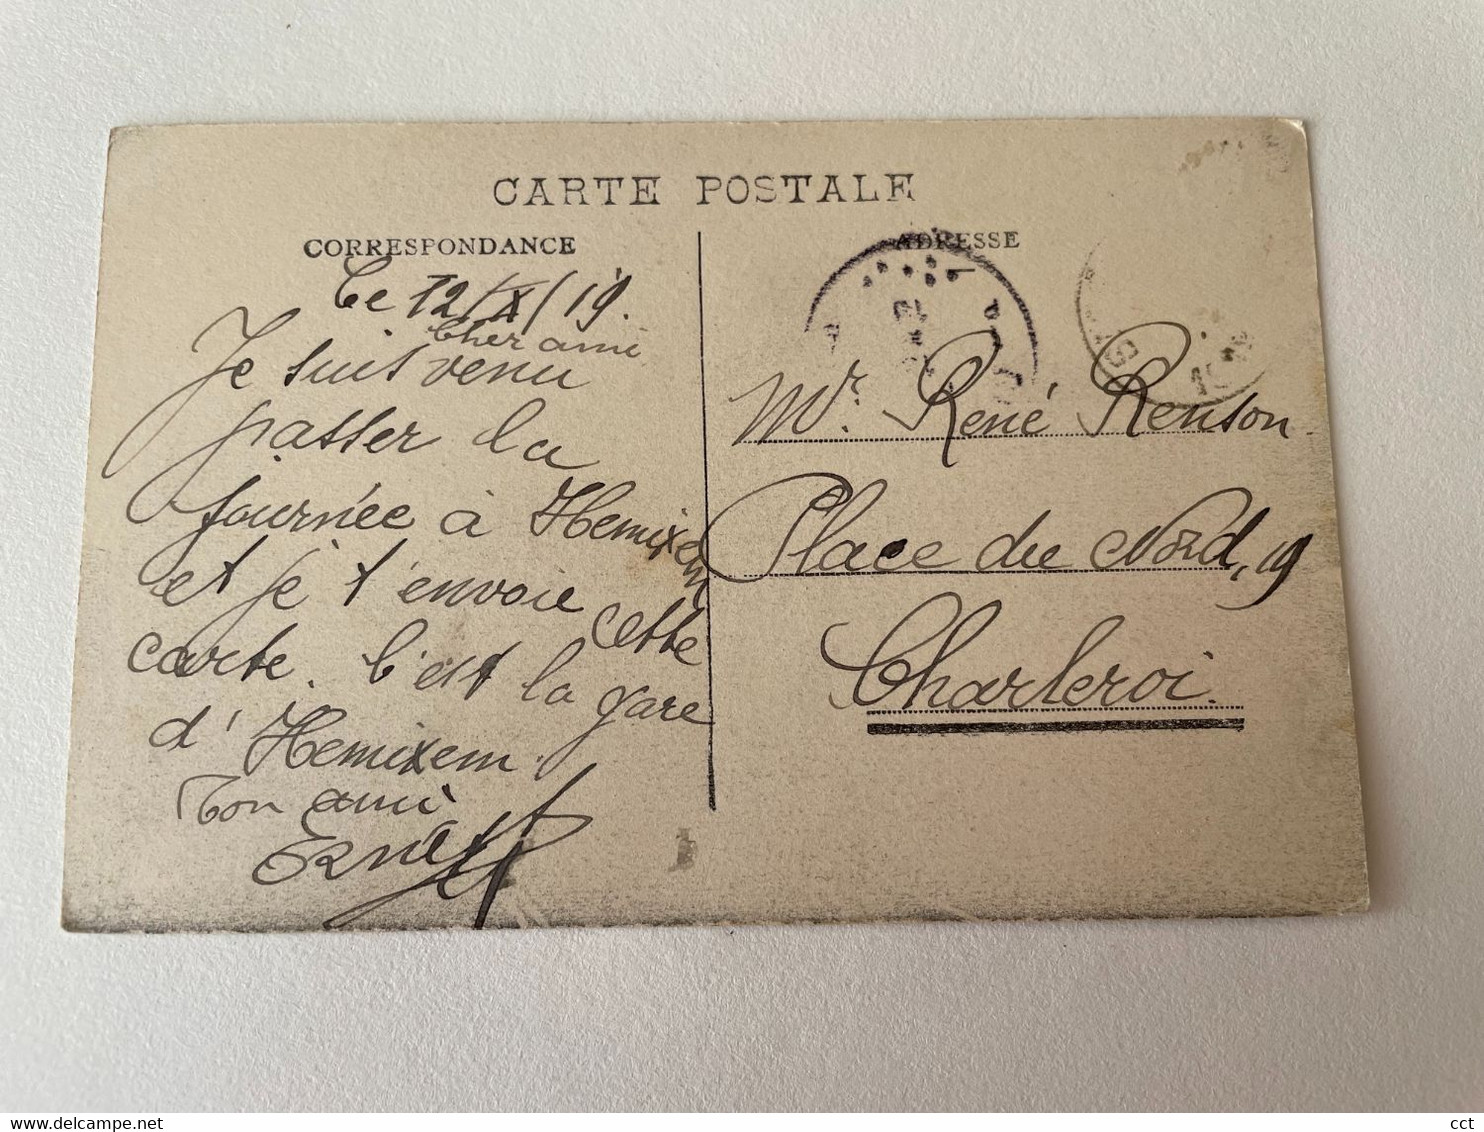 CARTE POSTALE
CORRESPONDANCE
Ce 12/X/19.
Cher ami
Je suis venu
passer la
journée à Hemixem
et je t'envoie cette
carte. C'est la gare
d'Hemixem.
Ton ami
Ernest
ADRESSE
Mr. René Renson.
Place du Nord, 19
Charleroi.
cct